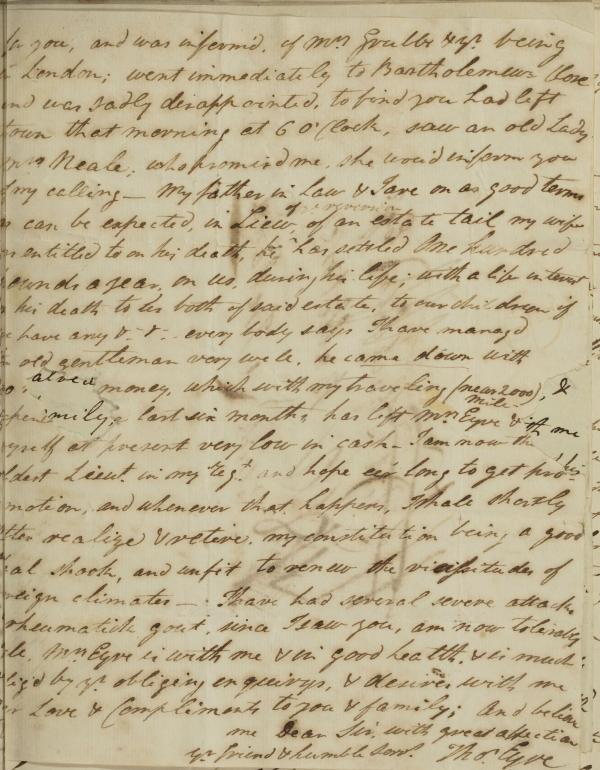 for you, and was inform'd, of Mrs Grubb & yr being
in London; went immediately to Bartholemew Close
and was sadly disappointed, to find you had left
town that morning at 6 O'Clock, saw an old Lady,
Mrs Neale, who promised me, she wou'd inform you
of my calling — My father in Law & I are on as good terms
as can be expected, in Liew of an estate tail my wife
of ye reversion
was entitled to on his death, he has settled One hundred
pounds a year, on us, during his life; with a life interest
at his death to us both of said estate, to our children if
we have any &. &. every body says I have managd
the old gentleman very well, he came down with
no money, which with my traveling (near 2000 mile), &
family, a last six months, has left Mrs Eyre &
myself at present very low in cash — I am now the
oldest Lieut. in my Regt. and hope e'er long to get pro-
motion, and whenever that happens, I shall shortly
after realize & retire. my constitution being a good
deal shook, and unfit to renew the vicissitudes of
foreign climates — I have had several severe attacks
rheumatick gout, since I saw you, am now tolerably
well. Mrs Eyre is with me & in good health, & is much
oblig'd by yr obliging enquirys, & desires with me
our Love & Compliments to you & family; And believe
me Dear Sir, with great affection
yr friend & humble Servt. Thos. Eyre